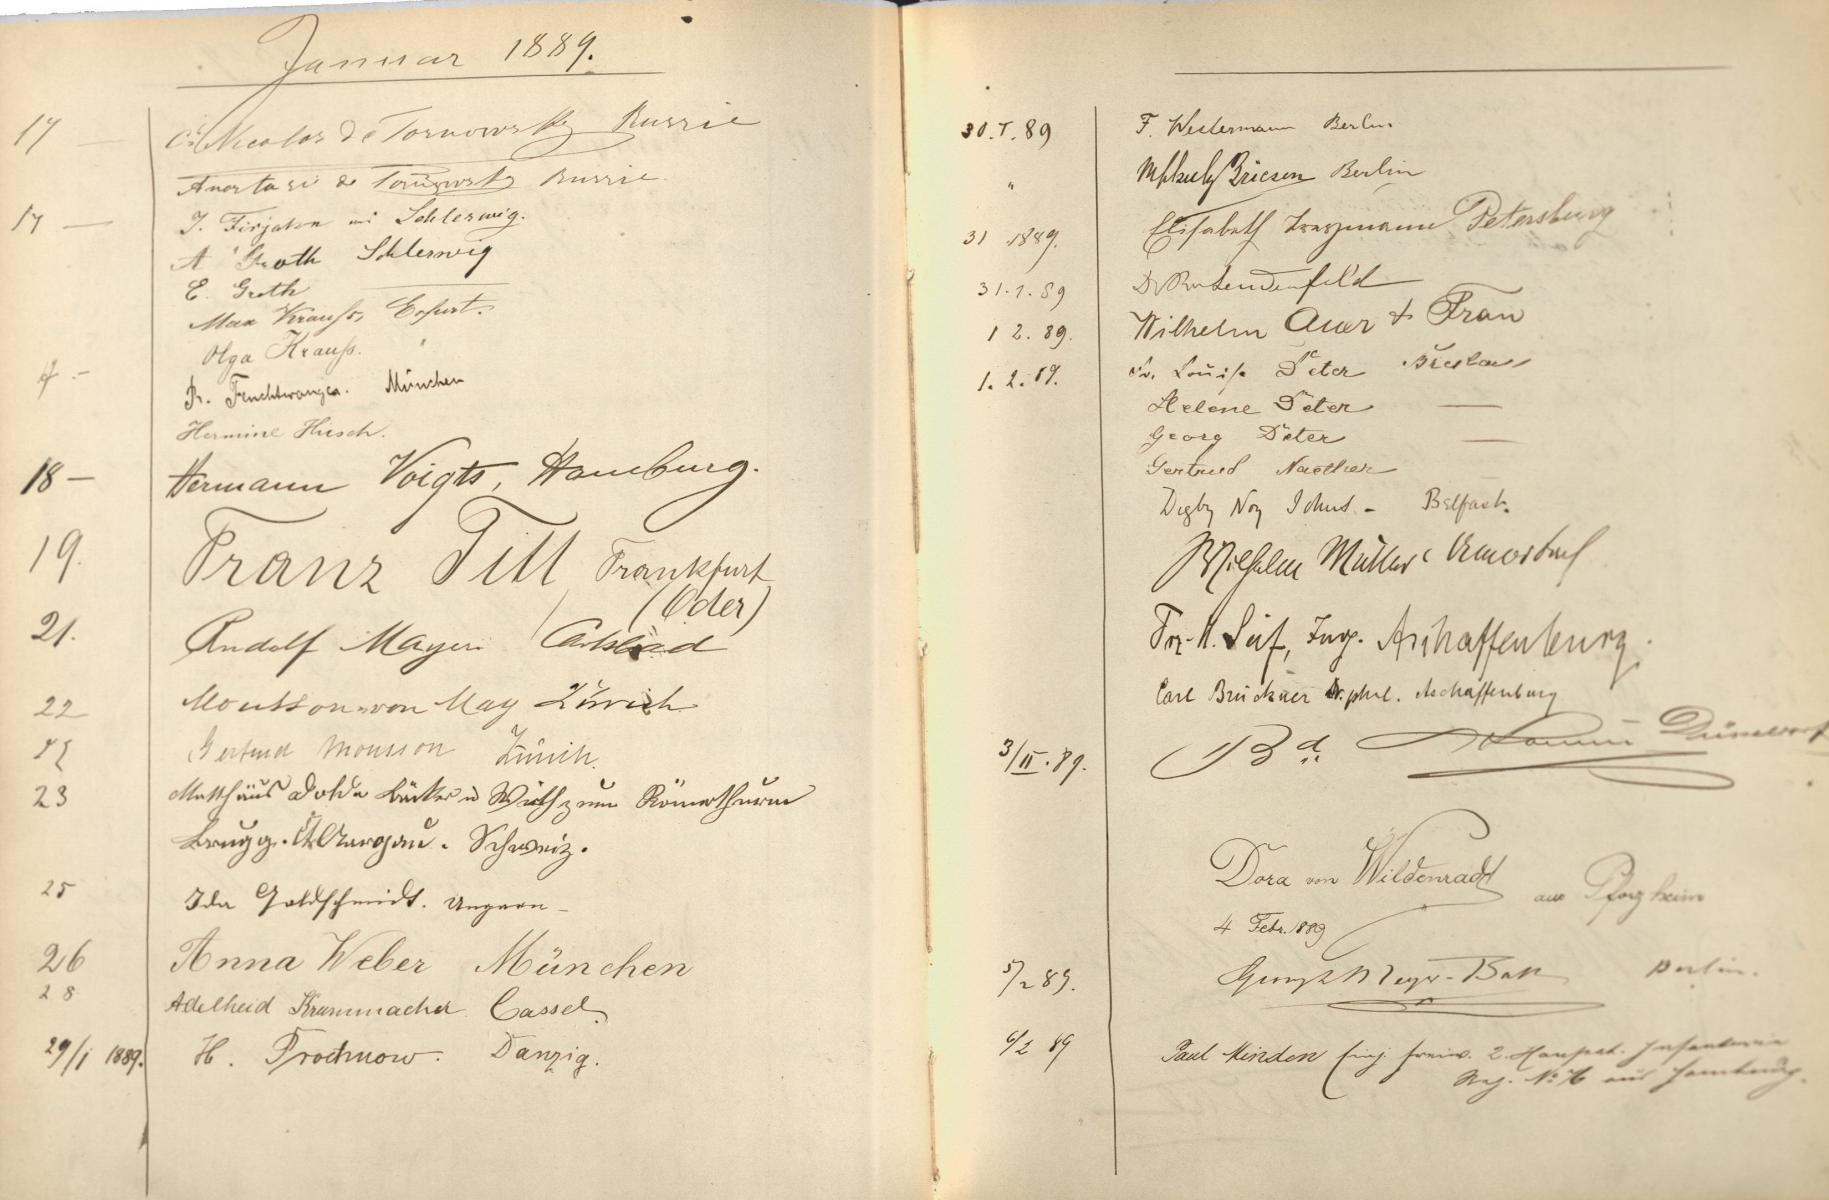 Januar 1889.
17 Nicolas de Tornowsky Russie
de Tornowsky Russie
17 J. Schleswig.
A Groth Schleswig
E. Groth
Max Krauss, Erfurt.
Olga Krauß. "
Dr. Feuchtwanger. München
Hermine Hirsch.
18 — Hermann Voigts, Hamburg.
19. Franz Titl Frankfurt
(Oder)
21. Rudolf Mayer Carlsbad
22 Mousson-von May Zürich
Gertrud Mousson Zürich.
23 Matthäus Bäcker u Wirth zum Römerthurm
Brugg. Aargau. Schweiz.
25 Ida Goldschmidt. Ungarn —
26 Anna Weber München
28 Adelheid Krummacher Cassel.
29/I 1889. H. Prochnow. Danzig.
30.I.89 F. Westermann Berlin
" Ericson Berlin
31 1889. Elisabeth Petersburg
31.1.89 Dr
1 2. 89. Wilhelm Auer + Frau
1. 2. 89. Fr. Louise Peter Breslau
Helene Peter —
Georg Peter —
Gertrud Naether
Digby Belfast.
Wilhelm Müller
Aschaffenburg.
Carl Brückner Dr. phil. Aschaffenburg
3/II. 89. Düsseldorf
Dora von Wildenradt aus Pforzheim
4 Febr. 1889
5/2 89. Georg Meyer- Berlin.
6/2 89 Paul Minden Einj. freiw. 2. Hanseat. Infanterie
Reg. No. 76 aus Hamburg.